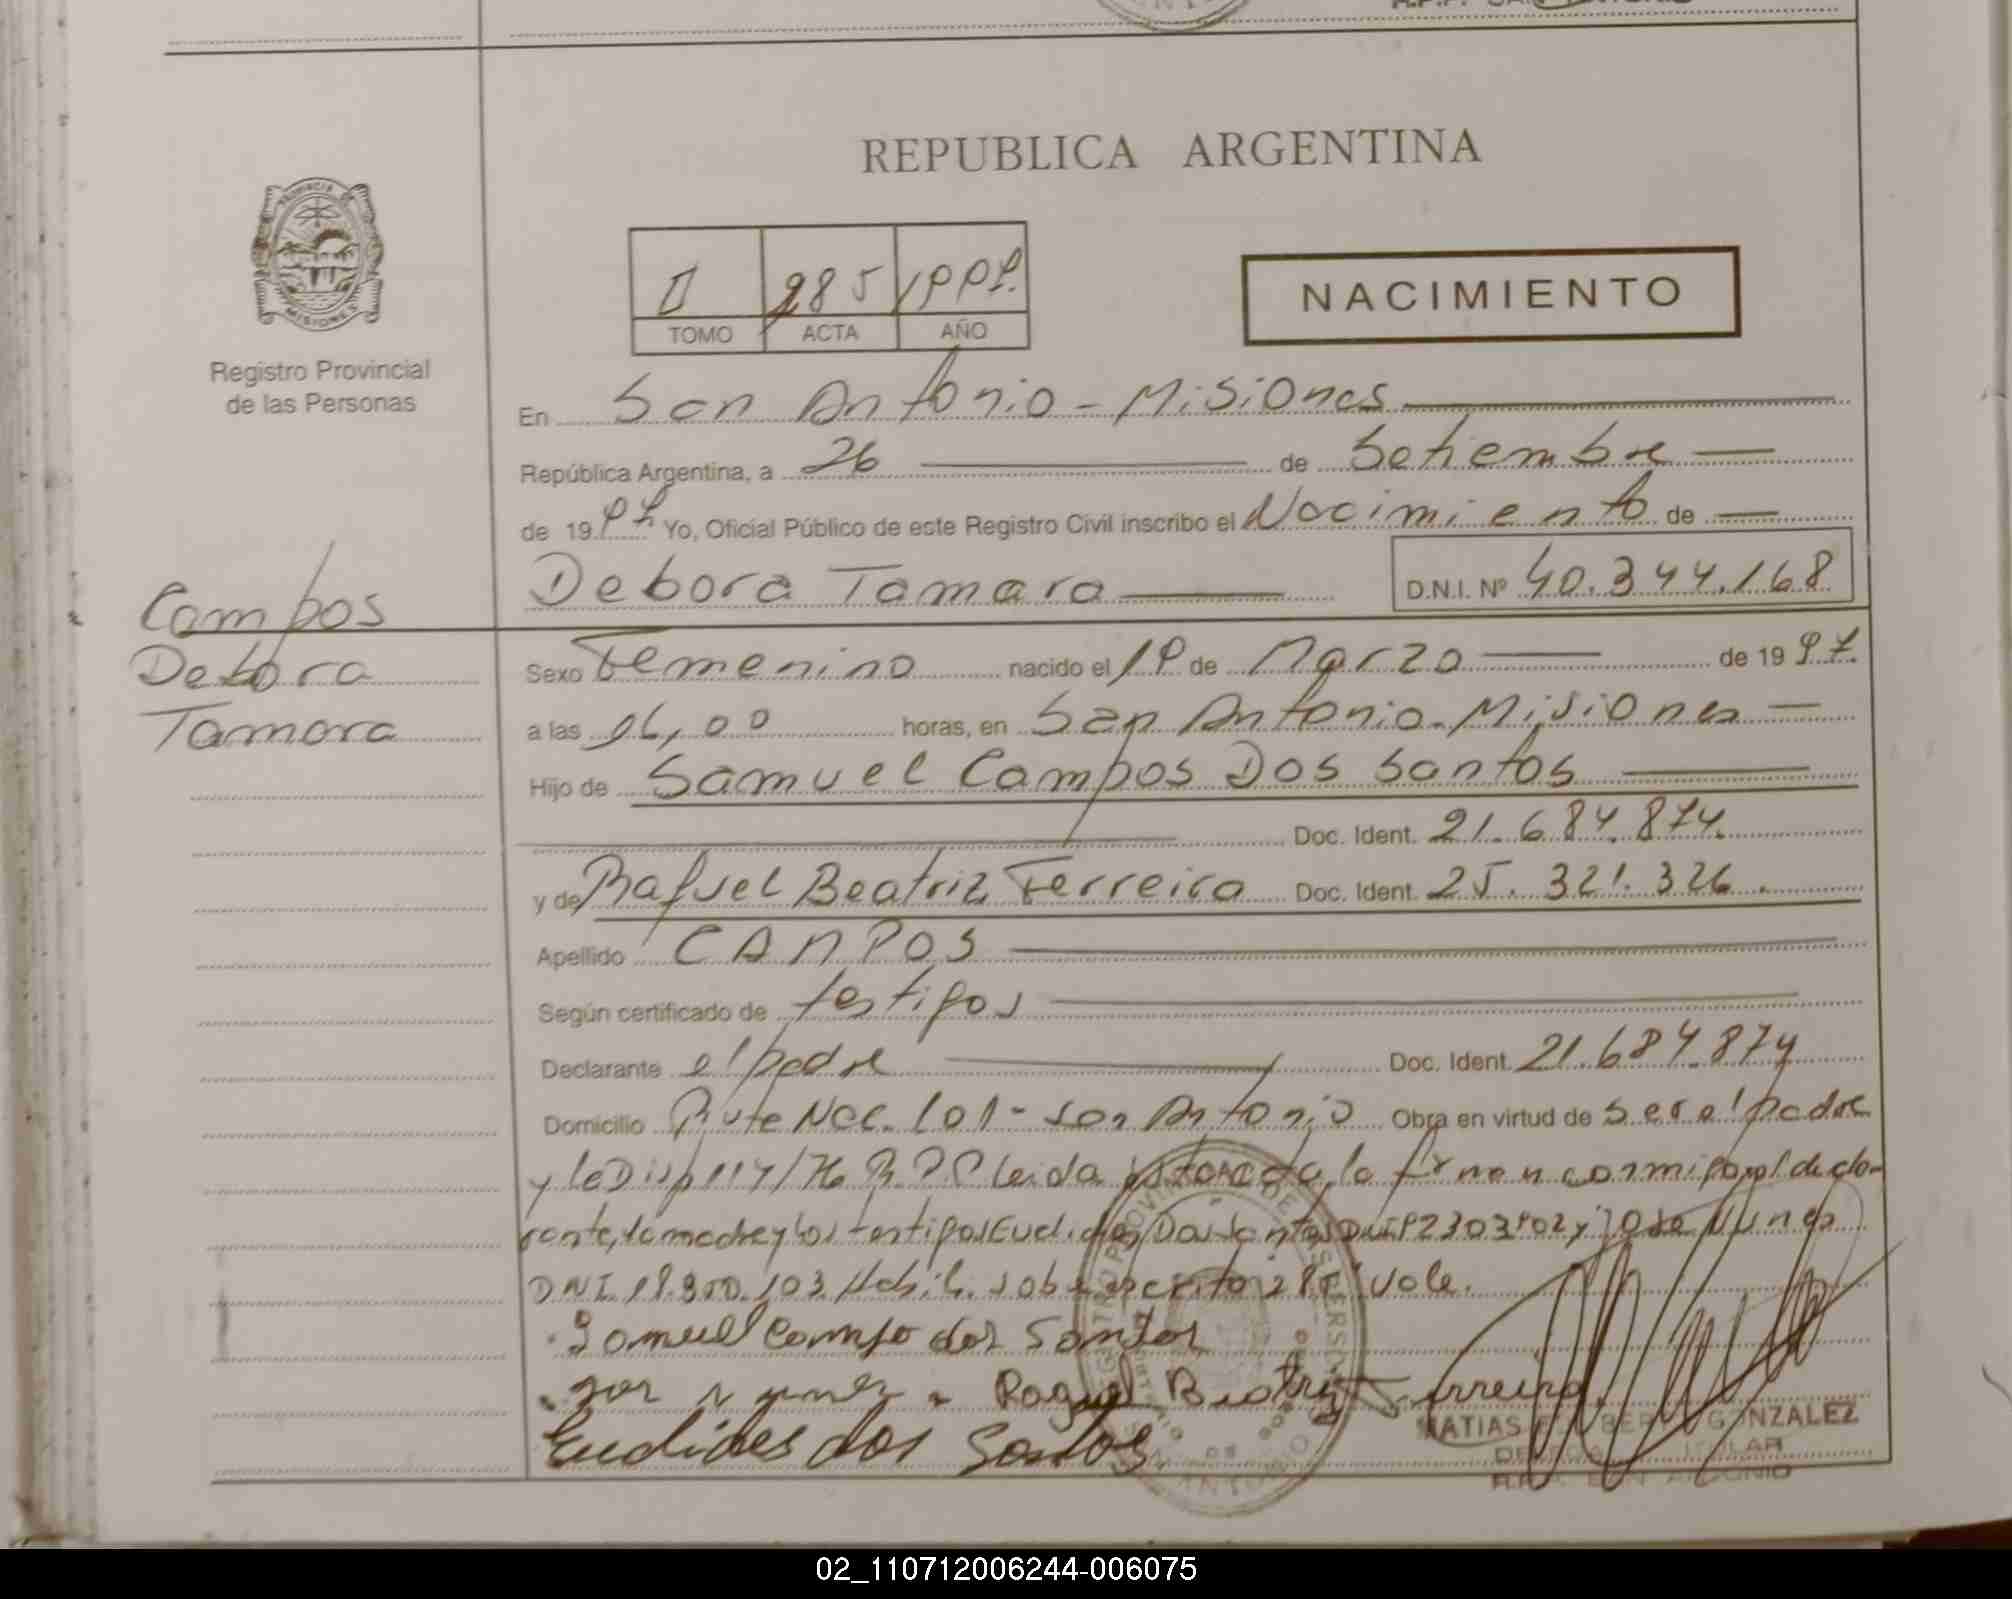 REPUBLICA ARGENTINA
PROVINCIA
MISIONES
Registro Provincial
de las Personas
II 285 1997.
TOMO ACTA AÑO
NACIMIENTO
En San Antonio - Misiones
República Argentina, a 26 de Setiembre
de 1997 Yo, Oficial Público de este Registro Civil inscribo el Nacimiento de
Debora Tamara D.N.I. Nº 40.344.168
Campos
Debora
Tamara
Sexo Femenino nacido el 19 de Marzo de 1997.
a las 06,00 horas, en San Antonio - Misiones
Hijo de Samuel Campos Dos Santos
Doc. Ident. 21.684.874.
y de Raquel Beatriz Ferreira Doc. Ident. 25.321.326.
Apellido CAMPOS
Según certificado de testigos
Declarante el padre Doc. Ident. 21.684.874
Domicilio Ruta Nac. 101 - San Antonio Obra en virtud de ser el padre
y la Disp 117/76 R.P.P. Leida el acta, la firman conmigo, el decla-
rante, la madre y los testigos Euclides Dos Santos DNI 92303902 y Jose Nunes
DNI 18.300.103 Habil. sobre escrito 285 vale.
Samuel Campo dos Santos
Jose Nunes Raquel Beatriz Ferreira
Euclides dos Santos
MATIAS GONZALEZ
TITULAR
SAN ANTONIO
02_110712006244-006075